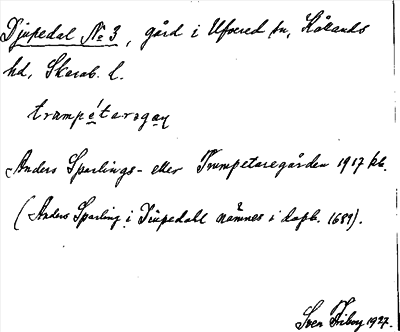 Djupedal No 3, gård i Ufvered sn, Kållands
hd, Skarab. l.
trumpétaragaɳ
Anders Sparlings- eller Trumpetaregården 1917 kb.
(Anders Sparling i Diupedall nämnes i dopb. 1689).
Sven Friberg 1927.